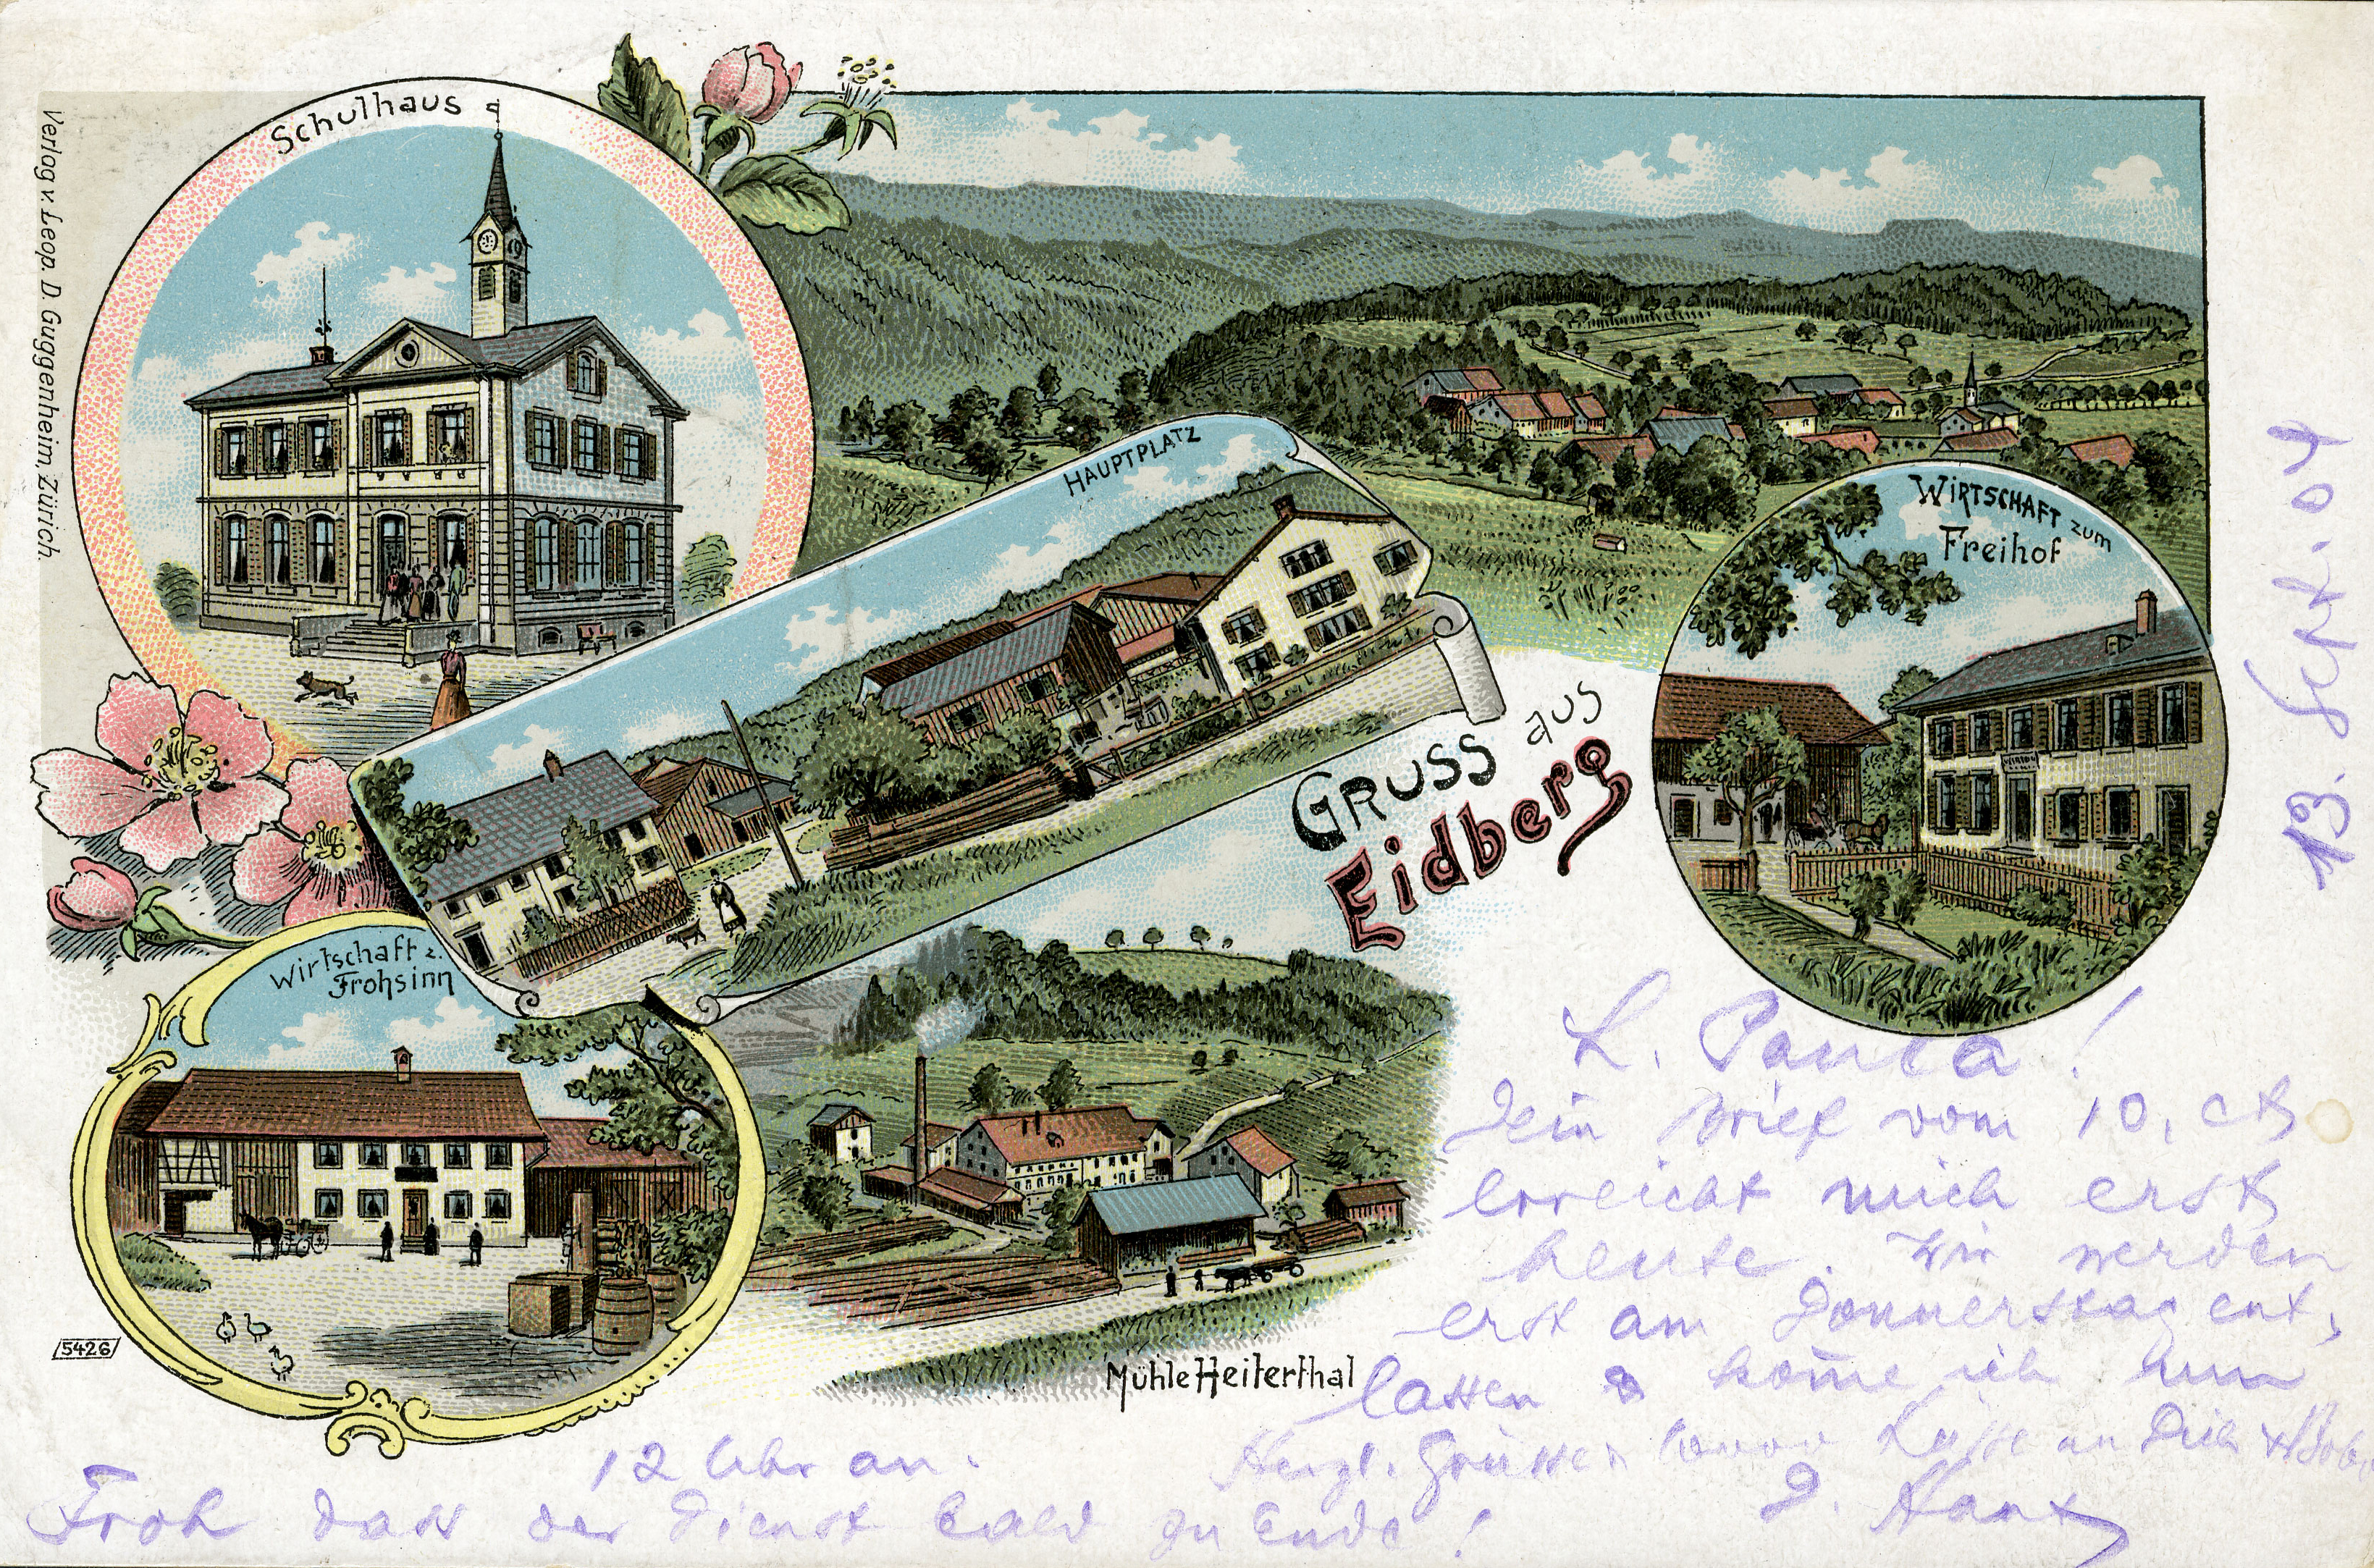 Schulhaus
Verlag v. Leop. D. Guggenheim, Zürich.
HAUPTPLATZ
WIRTSCHAFT zum
Freihof
GRUSS aus
Eidberg
Wirtschaft z.
Frohsinn
5426
Mühle Heiterthal
13. Sept. 04
L. Paula!
Dein Brief vom 10. ct
erreicht mich erst
heute. Wir werden
erst am Donnerstag ent,
lassen & kom̄e ich um
12 Uhr an.
Herzl. Grüsse & 1000 Küsse an Dich &
D. Hans
Froh dass der Dienst bald zu Ende!